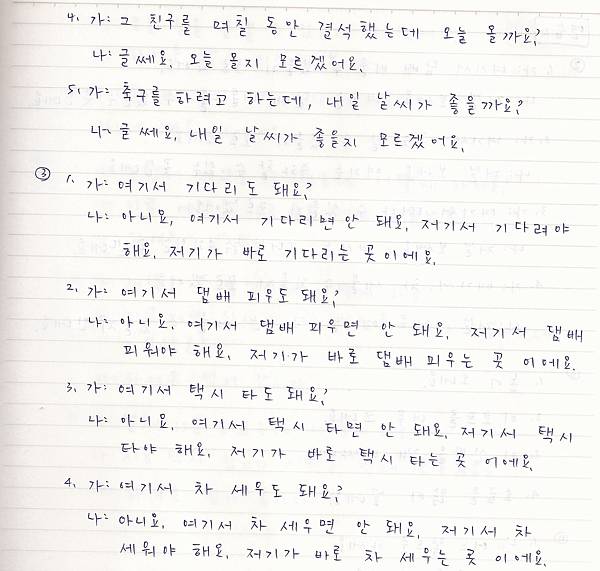 4. 가: 그 친구를 며칠 동안 결석했는데 오늘 올까요?
나: 글쎄요. 오늘 올지 모르겠어요.
5. 가: 축구를 하려고 하는데, 내일 날씨가 좋을까요?
나: 글쎄요, 내일 날씨가 좋을지 모르겠어요.
③ 1. 가: 여기서 기다리도 돼요?
나: 아니요, 여기서 기다리면 안 돼요, 저기서 기다려야
해요, 저기가 바로 기다리는 곳이에요.
2. 가: 여기서 댐배 피우도 돼요?
나: 아니요. 여기서 댐배 피우면 안 돼요, 저기서 댐배
피워야 해요, 저기가 바로 댐배 피우는 곳 이에요.
3. 가: 여기서 택시 타도 돼요?
나: 아니요, 여기서 택시 타면 안 돼요, 저기서 택시
타야 해요, 저기가 바로 택시 타는 곳 이에요.
4. 가: 여기서 차 세우도 돼요?
나: 아니요, 여기서 차 세우면 안 돼요, 저기서 차
세워야 해요, 저기가 바로 차 세우는 곳 이에요.